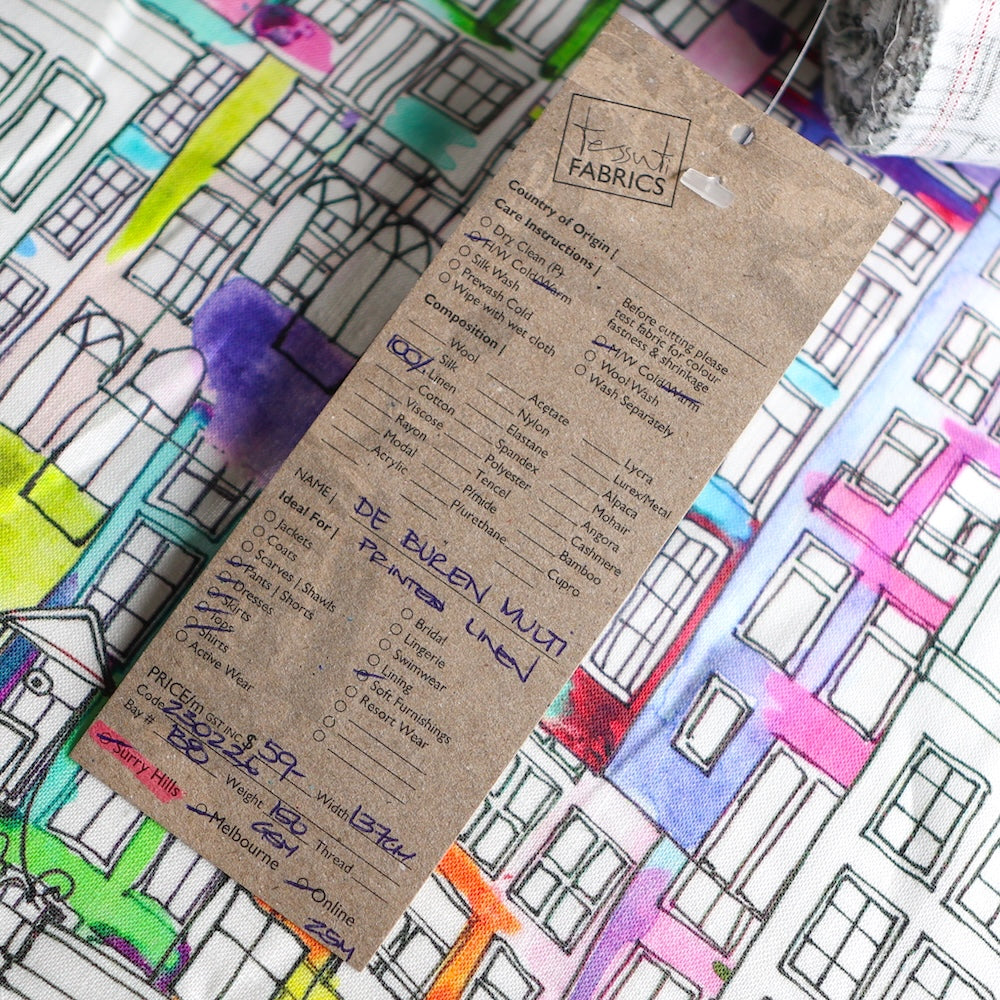 Tessuti
FABRICS
Country of Origin |
Care Instructions |
Dry Clean (P)
H/W Cold/Warm
Silk Wash
Prewash Cold
Wipe with wet cloth
Before cutting please
test fabric for colour
fastness & shrinkage
M/W Cold/Warm
Wool Wash
Wash Separately
Composition |
Wool
Silk
100% Linen
Cotton
Viscose
Rayon
Modal
Acrylic
Acetate
Nylon
Elastane
Spandex
Polyester
Tencel
Pimide
Plurethane
Lycra
Lurex/Metal
Alpaca
Mohair
Angora
Cashmere
Bamboo
Cupro
NAME | DE BUREN MULTI
PRINTED LINEN
Ideal For |
Jackets
Coats
Scarves | Shawls
Pants | Shorts
Dresses
Skirts
Tops
Shirts
Active Wear
Bridal
Lingerie
Swimwear
Lining
Soft Furnishings
Resort Wear
PRICE/m GST INC $ 59-
Code 230226
Width 137CM
Bay # B90
Weight 150 GSM
Thread
Surry Hills
Melbourne
Online
25M